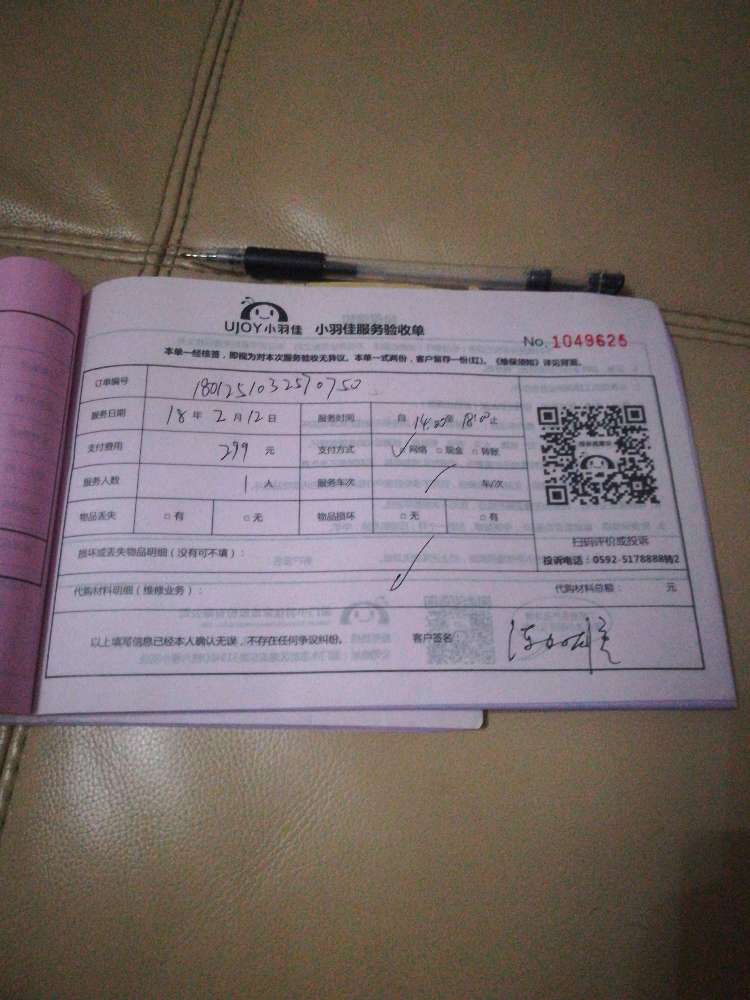 UJOY小羽佳 小羽佳服务验收单
No. 1049625
本单一经核签，即视为对本次服务验收无异议。本单一式两份，客户留存一份(红)。《维保须知》详见背面。
订单编号 1801251032570750
服务日期 18 年 2 月 12 日 服务时间 自 14:00 至 18:00 止
支付费用 299 元 支付方式 ✓ □ 网络 □ 现金 □ 转账
服务人数 1 人 服务车次 / 车/次
物品丢失 □ 有 □ 无 物品损坏 □ 无 □ 有
扫码评价或投诉
投诉电话：0592-5178888转2
损坏或丢失物品明细（没有可不填）：
代购材料明细（维修业务）： 代购材料总额： 元
以上填写信息已经本人确认无误，不存在任何争议纠纷。 客户签名：